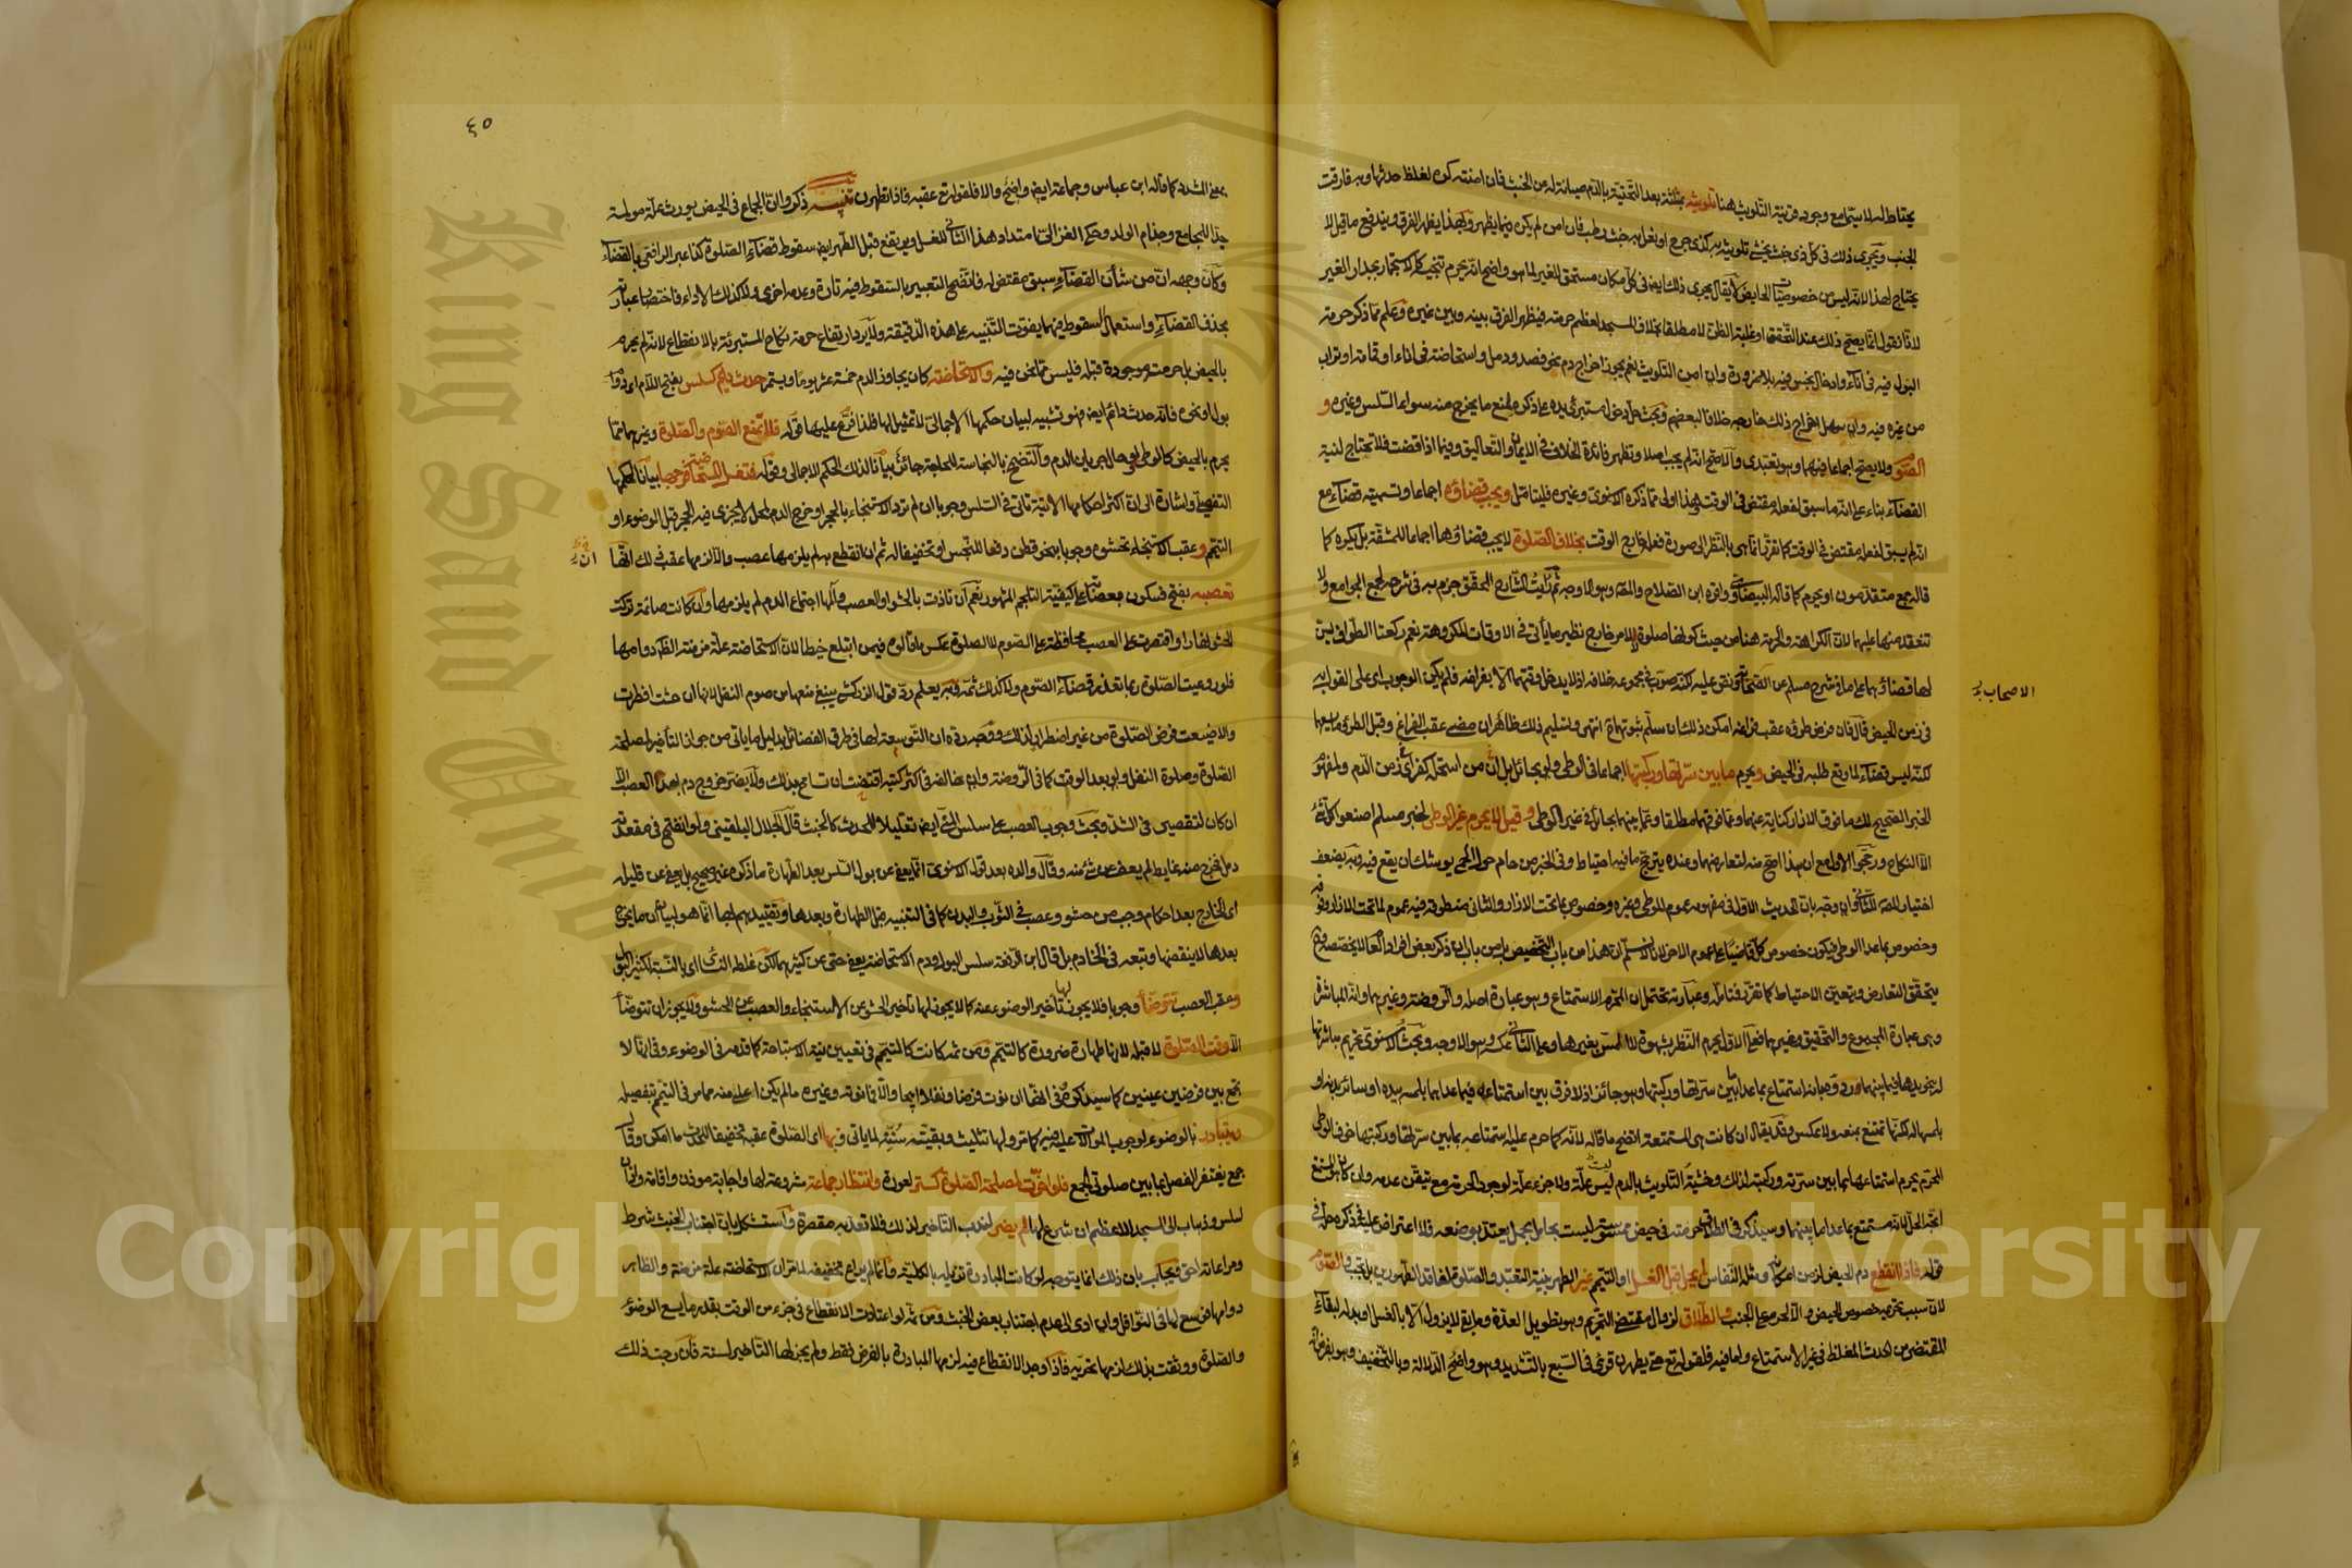 يحتاط له لا سيما مع وجود قرينة التلويث هنا تلويثه بمثلثة بعد التحتية وبالدم صيانة له عن الخبث فان امنته كره لغلظ حدثها وبه فارقت
الجنب ويجري ذلك في كل ذي خبث يخشى تلويثه به كذي جرح او نعل به خبث رطب فان امن لم يكره فيما يظهر وبهذا يظهر الفرق ويندفع ما قيل لا
يحتاج لهذا لانه ليس من خصوصيات الحايض لا يقال يجري ذلك ايضا في كل مكان مستحق للغير لما هو واضح انه يحرم تنجيسه كالاستجمار بجدار الغير
لانا نقول انما يصح ذلك عند التحقق او غلبة الظن لا مطلقا بخلاف المسجد لعظم حرمته فيظهر الفرق بينه وبين غيره وعلم مما ذكر حرمة
البول فيه في اناء وادخال نجس فيه بلا ضرورة وان امن التلويث نعم يجوز اخراج دم نحو فصد ودمل واستحاضة في اناء او قمامة او تراب
من غيره فيه وان سهل اخراج ذلك خارجه خلافا لبعضهم وبحث حل دخول مستبرئ يده على ذكره لمنع ما يخرج منه سواء السلس وغيره و
الصوم ولا يصح اجماعا فيهما وهو تعبدي والاصح انه لم يجب اصلا وتظهر فائدة الخلاف في الايمان والتعاليق وفيما اذا قضت فلا تحتاج لنية
القضاء بناء على انه ما سبق لفعله مقتض في الوقت وهذا اولى مما ذكره الاسنوي وغيره فليتأمل ويجب قضاؤه اجماعا وتسميته قضاء مع
انه لم يسبق لفعله مقتض في الوقت كما تقرر انما هي بالنظر الى صورة فعله خارج الوقت بخلاف الصلوة لا يجب قضاؤها اجماعا للمشقة بل يكره كما
قاله جمع متقدمون او يحرم كما قاله البيضاوي واقره ابن الصلاح والمص وهو الاوجه ثم رأيت الشارح المحقق جزم به في شرحه لجمع الجوامع ولا
تنعقد منها عليهما لان الكراهة والحرمة هنا من حيث كونها صلوة لا لامر خارج نظير ما يأتي في الاوقات المكروهة نعم ركعتا الطواف يسن
لها قضاؤهما على ما في شرح مسلم عن الاصحاب ونص عليه لكنه صوب في مجموعه خلافه اذ لا يدخل وقتهما الا بفراغه فلم يكن الوجوب اي على القول به
في زمن الحيض قال فان فرض طروه عقب فراغه امكن ذلك ان سلم ثبوتهما انتهى وتسليم ذلك ظاهر ان مضى عقب الفراغ وقبل الطرو ما يسعهما
لكنه ليس قضاء لما وقع طلبه في الحيض ويحرم ما بين سرتها وركبتها اجماعا في الوطي ولو بحائل بل ان من استحله كفر اي في زمن الدم ولمفهوم
الخبر الصحيح لك ما فوق الازار كناية عنهما وعما فوقهما مطلقا وعما بينهما بحائل في غير الوطي وقيل لا يحرم غير الوطي لخبر مسلم اصنعوا كل شيء
الا النكاح ورجح الاول مع ان هذا اصح منه لتعارضهما وعنده يترجح ما فيه احتياط وفي الخبر من حام حول الحمى يوشك ان يقع فيه وبه يضعف
اختيار المص للثاني وان وجه بان الحديث الاول في مفهومه عموم للوطي وغيره وخصوص بما تحت الازار والثاني منطوقه فيه عموم لما تحت الازار وفوقه
وخصوص بما عدا الوطي فيكون خصوص كل قاضيا على عموم الاخر لانا لا نسلم ان هذا من باب التخصيص بل من باب ان ذكر بعض افراد العام لا يخصصه وح
يتحقق التعارض ويتعين الاحتياط كما تقرر فتأمله وعبارته تحتمل ان المحرم الاستمتاع وهو عبارة اصله والروضة وغيرهما وانه المباشرة
وهي عبارة المجموع والتحقيق وغيرهما فعلى الاول يحرم النظر بشهوة لا اللمس بغيرها وعلى الثاني عكسه وهو الاوجه وبحث الاسنوي تحريم مباشرتها
له بنحو يدها فيما بينهما ورد وه بانه استمتاع بما عدا ما بين سرتها وركبتها وهو جائز اذ لا فرق بين استمتاعه فيما عداهما بلمسه بيده او سائر بدنه او
بلمسها له لكنها تمتنع بمنعه ولا عكس وقد يقال ان كانت هي المستمتعة اتضح ما قاله لانه كما حرم عليه استمتاعه بما بين سرتها وركبتها خوف الوطي
المحرم يحرم استمتاعها بما بين سرته وركبته لذلك وخشية التلويث بالدم ليس علة ولا جزء علة لوجود الحرمة مع تيقن عدمه وان كان هو المستمتع
اتجه الحل لانه مستمتع بما عدا ما بينهما وسيذكر في الطلاق حرمته في حيض ممسوسة ليست بحامل بحمل يعتد بوضعه فلا اعتراض عليه في ذكره حله في
قوله فاذا انقطع دم الحيض لزمن امكانه ومثله النفاس لم يحل قبل الغسل او التيمم غير الطهر بنية التعبد والصلوة لفاقد الطهورين بل تجب والصوم
لان سبب تحريمه خصوص الحيض والا لحرم على الجنب والطلاق لزوال مقتضى التحريم وهو تطويل العدة وما بقي لا يزول الا بالغسل او بدله لبقاء
المقتضي من الحدث المغلظ في غير الاستمتاع ولما فيه فلقوله تع حتى يطهرن قرئ في السبع بالتشديد وهو واضح الدلالة وبالتخفيف وهو بفرض انه
الاصحاب
٤٥
بمعنى المشدد كما قاله ابن عباس وجماعة ايضا واضح والا فلقوله تع عقبه فاذا تطهرن تنبيه ذكروا ان الجماع في الحيض يورث علة مولمة
جدا للمجامع وجذام الولد وحكي الغزالي امتداد هذا الثاني للغسل ويرتفع قبل الطهر ايضا سقوط قضاء الصلوة كذا عبر الرافعي بالقضاء
وكان وجهه ان من شأن القضاء سبق مقتض له فاتضح التعبير بالسقوط فيه تارة وعدمه اخرى ولا كذلك الاداء فاختصار عبارته
بحذف القضاء واستعمال السقوط فيهما يفوت التنبيه على هذه الدقيقة ولا يرد ارتفاع حرمة نكاح المستبرئة بالانقطاع لانه لم يحرم
بالحيض بل حرمته موجودة قبله فليس مما نحن فيه والاستحاضة كان يجاوز الدم خمسة عشر يوما ويستمر حدث دايم كسلس بفتح اللام اي دوام
بول او نحوه فانه حدث دائم ايضا فهو تشبيه لبيان حكمها الاجمالي لا تمثيل لها فلذا فرع عليها قوله فلا تمنع الصوم والصلوة وغيرهما مما
يحرم بالحيض كالوطي ولو حال جريان الدم والتضمخ بالنجاسة للحاجة جائز بيانا لذلك الحكم الاجمالي وقوله فتغسل المستحاضة فرجها بيانا لحكمها
التفصيلي واشارة الى ان اكثر احكامها الاتية تأتي في السلس وجوبا ان لم ترد الاستنجاء بالحجر او خرج الدم لمحل لا يجزي فيه الحجر قبل الوضوء او
التيمم و عقب الاستنجاء تحشوه وجوبا بنحو قطن دفعا للنجس او تخفيفا له ثم ان انقطع به لم يلزمها عصب والا لزمها عقب ذلك انها
ان
تعصبه بفتح فسكون بعصابة على كيفية التلجم المشهور نعم ان تاذت بالحشو او العصب وآلمها اجتماع الدم لم يلزمها وان كانت صائمة تركت
الحشو نهارا واقتصرت على العصب محافظة على الصوم لا الصلوة عكس ما قالوه فيمن ابتلع خيطا لان الاستحاضة علة مزمنة الظاهر دوامها
فلو روعيت الصلوة ربما تعذر قضاء الصوم ولا كذلك ثمة وبه يعلم رد قول الزركشي ينبغي منعها من صوم النفل لانها ان حشت افطرت
والا ضيعت فرض الصلوة من غير اضطرار لذلك ووجه رده ان التوسعة لها في طرق الفضائل بدليل ما ياتي من جواز التأخير لمصلحة
الصلوة وصلوة النفل ولو بعد الوقت كما في الروضة وان خالفه في اكثر كتبه اقتضت ان تسامح بذلك ولا يضر خروج دم بعد العصب الا
ان كان لتقصير في الشد وبحث وجوب العصب على سلس المني ايضا تقليلا للحدث كالخبث قال الجلال البلقيني ولو انفتح في مقعدته
دمل فخرج منه غايط لم يعف عن شيء منه وقال والده بعد قول الاسنوي انما يعفى عن بول السلس بعد الطهارة ما ذكره غير صحيح بل يعفى عن قليله
اي الخارج بعد احكام وجب من حشو وعصب في الثوب والبدن كما في التنبيه قبل الطهارة وبعدها وتقييدهم لها انما هو لبيان ما يخرج
بعدها لا ينقضها وتبعه في الخادم بل قال ابن الرفعة سلس البول ودم الاستحاضة يعفى حتى عن كثيرهما لكن غلطه النشائي اي بالنسبة لكثير البول
وعقب العصب تتوضأ وجوبا فلا يجوز لها تأخير الوضوء عنه كما لا يجوز لها تأخير الحشو عن الاستنجاء والعصب عن الحشو ولا يجوز ان تتوضأ
الا وقت الصلوة لا قبله لانها طهارة ضرورة كالتيمم ومن ثمه كانت كالتيمم في تعيين نية الاستباحة كما قدمه في الوضوء وفي انها لا
تجمع بين فرضين عينين كما سيذكره وفي انها ان نوت فرضا ونفلا ابيحا والا فما نوته وغيره ما لم يكن اعلى منه مما مر في التيمم بتفصيله
وتبادر بالوضوء لوجوب الموالاة عليها فيه كما مر ولها تثليث وبقية سننه لما ياتي وبها اي الصلوة عقبه تخفيفا للحدث ما امكن وقال
جمع يغتفر الفصل بما بين صلوتي الجمع فلو اخرت لمصلحة الصلوة كستر لعورة وانتظار جماعة مشروعة لها واجابة موذن واقامة واذان
لسلس وذهاب الى المسجد الاعظم ان شرع لها لم يضر لندب التاخير لذلك فلا تعد به مقصرة واستشكل بان اجتناب الخبث شرط
ومراعاته احق ويجاب بان ذلك انما يتوجه لو كانت المبادرة تزيله بالكلية وانما لم يراع تخفيفه لما مر ان الاستحاضة علة مزمنة والظاهر
دوامها فوسع لها في النوافل وان ادى الى عدم اجتناب بعض الخبث ومن ثم لو اعتادت الانقطاع في جزء من الوقت بقدر ما يسع الوضوء
والصلوة ووثقت بذلك لزمها تحريه فاذا وجد الانقطاع فيه لزمها المبادرة بالفرض فقط ولم يجز لها التأخير لسنة فان رجت ذلك
King Saud University
Copyright © King Saud University